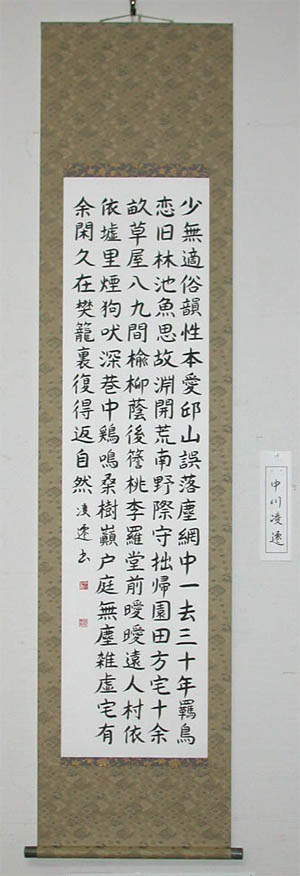 少無適俗韻性本愛邱山誤落塵網中一去三十年羈鳥
恋旧林池魚思故淵開荒南野際守拙帰園田方宅十余
畝草屋八九間楡柳蔭後簷桃李羅堂前曖曖遠人村依
依墟里煙狗吠深巷中鶏鳴桑樹巓户庭無塵雑虚宅有
余閑久在樊籠裏復得返自然
中川凌